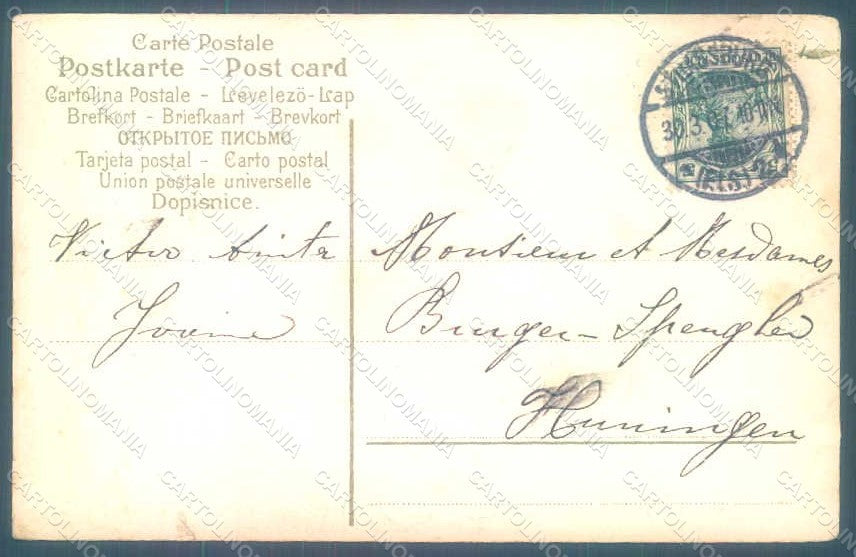 Carte Postale
Postkarte - Post card
Cartolina Postale - Levelező-Lap
Brefkort - Briefkaart - Brevkort
ОТКРЫТОЕ ПИСЬМО
Tarjeta postal - Carto postal
Union postale universelle
Dopisnice.
30.3.07. 10-11
(ELS)
Victor Anita
Monsieur et Mesdames
Burger-Spengler
Huningen
CARTOLINOMANIA